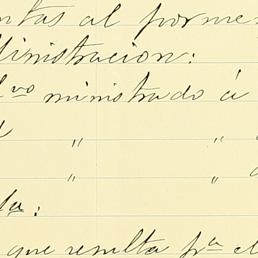 ntas al porme
ministracion:
vo ministrado á
" "
" "
la:
que resulta pra el